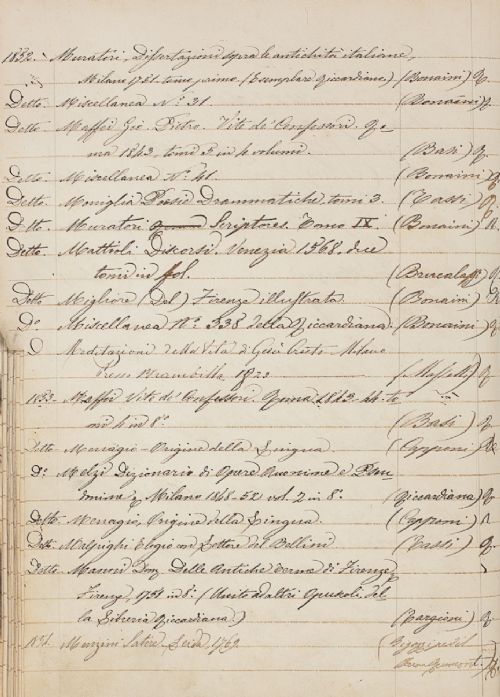 1852. Muratori, Dissertazioni sopra le antichità italiane,
Milano 1751 tomo primo (Esemplare Riccardiano) (Bonaini) R.
Detto. Miscellanea N.° 21. (Bonaini) R.
Detto. Maffei Gio. Pietro. Vite de' Confessori. Ro-
ma 1843. tomi in 4 volumi. (Basi) R.
Detto. Miscellanea N.° 41. (Bonaini) R.
Detto. Moniglia Poesie Drammatiche tomi 3. (Tassi) R.
Detto. Muratori Scriptores. Tomo IX (Bonaini) R.
Detto. Mattioli Discorsi. Venezia 1568. due
tomi in fol. R.
Detto Migliore (Del) Firenze illustrata. (Bonaini) R.
D.° Miscellanea N.° 338 della Riccardiana. (Bonaini) R.
D Meditazioni della Vita di Gesù Cristo Milano
1853. Maffei Vite de' Confessori. Roma 1843-44. to-
mi 4 in 8.° (Basi) R.
Detto Menagio. Origine della Lingua (Capponi)
D.° Melzi Dizionario di Opere Anonime e Pseu-
domine Milano 1848-52. vol. 2 in 8.° (Riccardiana) R.
Detto. Menagio, Origine della Lingua. (Capponi) R
Detto. Malpighi Elogio con Lettere del Bellini (Tassi) R.
Detto. Manni Dom. Delle Antiche terme di Firenze
Firenze, 1751 in 8.° (Unito ad altri Opuscoli del-
la Libreria Riccardiana.) (Bargioni) R.
Menzini Satire 1769.